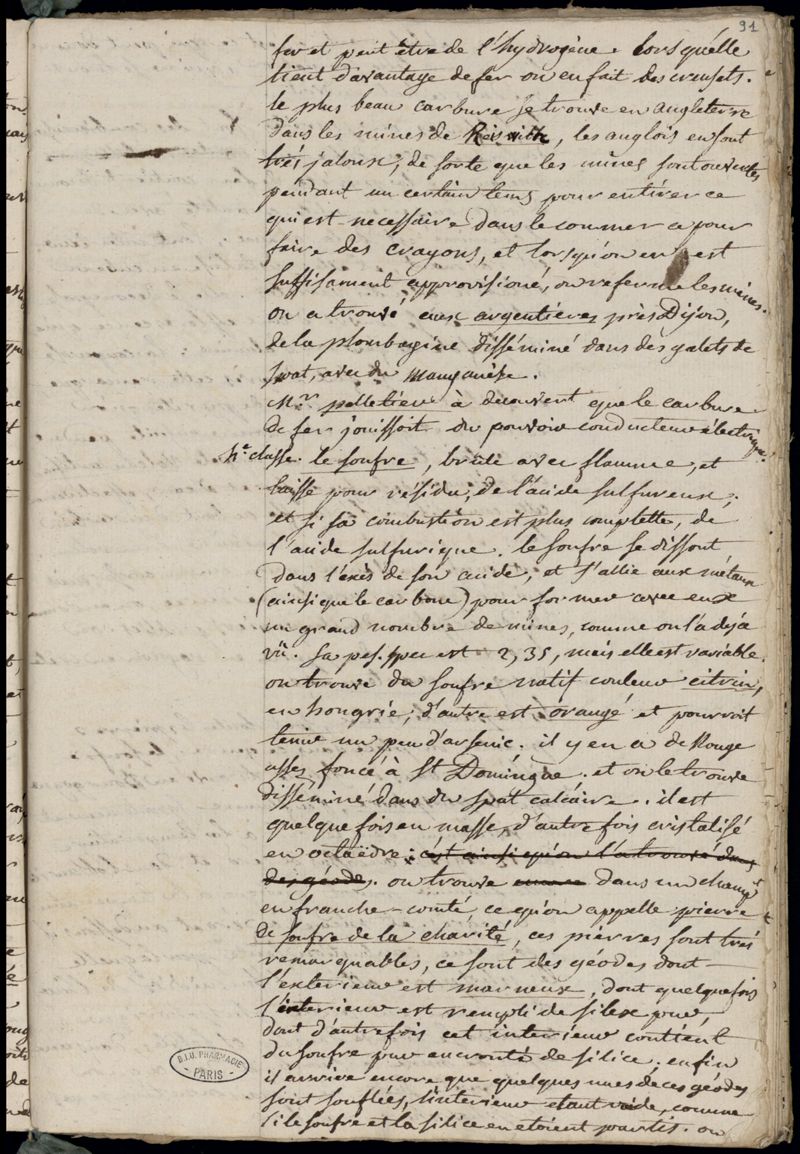 91
fer et peut être de l'hydrogène. lorsqu'elle
tient d'avantage de fer on en fait des creusets.
le plus beau carbure se trouve en angleterre
dans les mines de , les anglois en sont
trés jaloux, de sorte que les mines sont ouvertes
pendant un certain tems pour en tirer ce
qui est necessaire dans le commerce pour
faire des crayons, et lorsqu'on en est
suffisament approvisioné, on referme les mines.
on a trouvé aux argentières près Dijon,
de la plombagine disséminé dans des galets de
spat, avec du manganèse.
Mr. pelletier à decouvert que le carbure
de fer jouissoit du pouvoir conducteur électrique.
4e. classe. le soufre, brûle avec flamme, et
laisse pour résidu, de l'acide sulfureux,
et si sa combustion est plus complette, de
l'acide sulfurique. le soufre se dissout
dans l'exès de son acide, et s'allie aux métaux
(ainsi que le carbone) pour former avec eux
un grand nombre de mines, comme on l'a dejà
vû. sa pes. spec est 2,35, mais elle est variable.
on trouve du soufre natif couleur citrin,
en hongrie; d'autre est orangé et pourroit
tenir un peu d'arsenic. il y en a de Rouge
assés foncé à St Domingue. et on le trouve
disséminé dans du spat calcaire. il est
quelque fois en masse, d'autre fois cristalisé
en octaëdre: c'est ainsi qu'on l'a trouvé dans
des géodes. on trouve encore dans un champ
en franche-comté ce qu'on appelle pierre
de soufre de la charité, ces pierres sont trés
remarquables, ce sont des géodes dont
l'exterieur est marneux, dont quelquefois
l'interieur est rempli de silex pur,
dont d'autrefois cet interieur contient
du soufre pur encrouté de silice. enfin
il arrive encore que quelques unes de ces géodes
sont souflées, l'interieur etant vuide, comme
si le soufre et la silice en etoient partis. on
B.I.U. PHARMACIE
PARIS